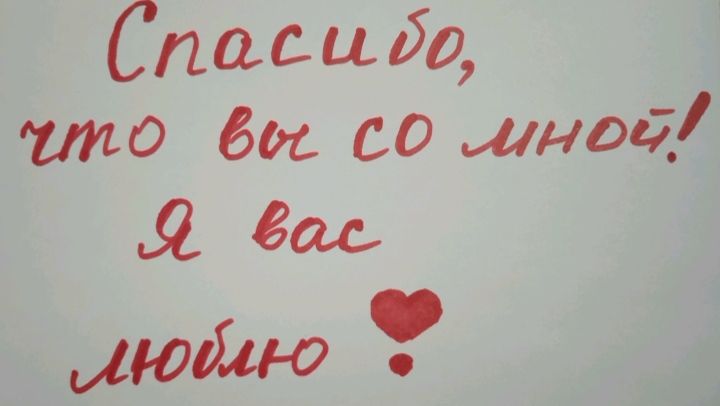 Спасибо,
что вы со мной!
Я вас
люблю